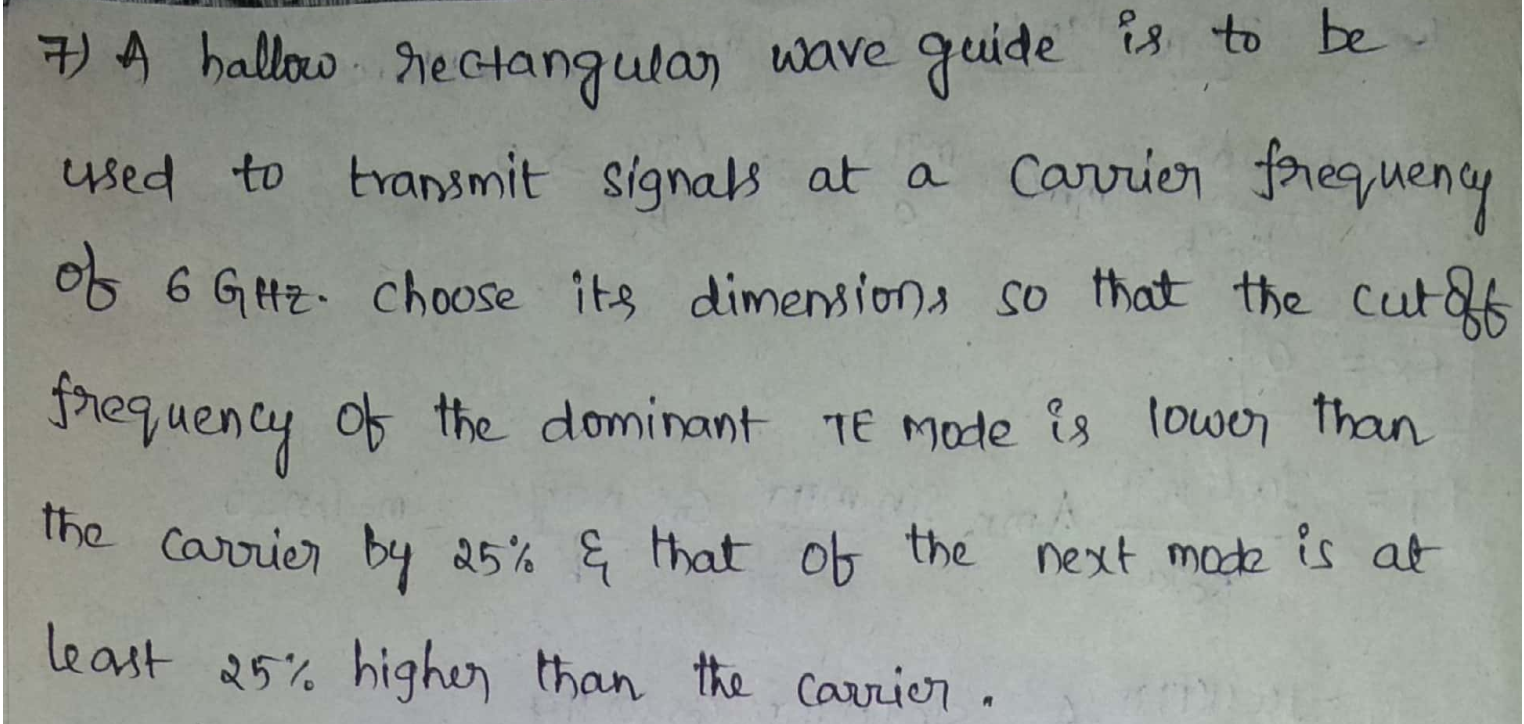 7) A hallow rectangular wave guide is to be
used to transmit signals at a carrier frequency
of 6 GHz. choose its dimensions so that the cutoff
frequency of the dominant TE mode is lower than
the carrier by 25% & that of the next mode is at
least 25% higher than the carrier.